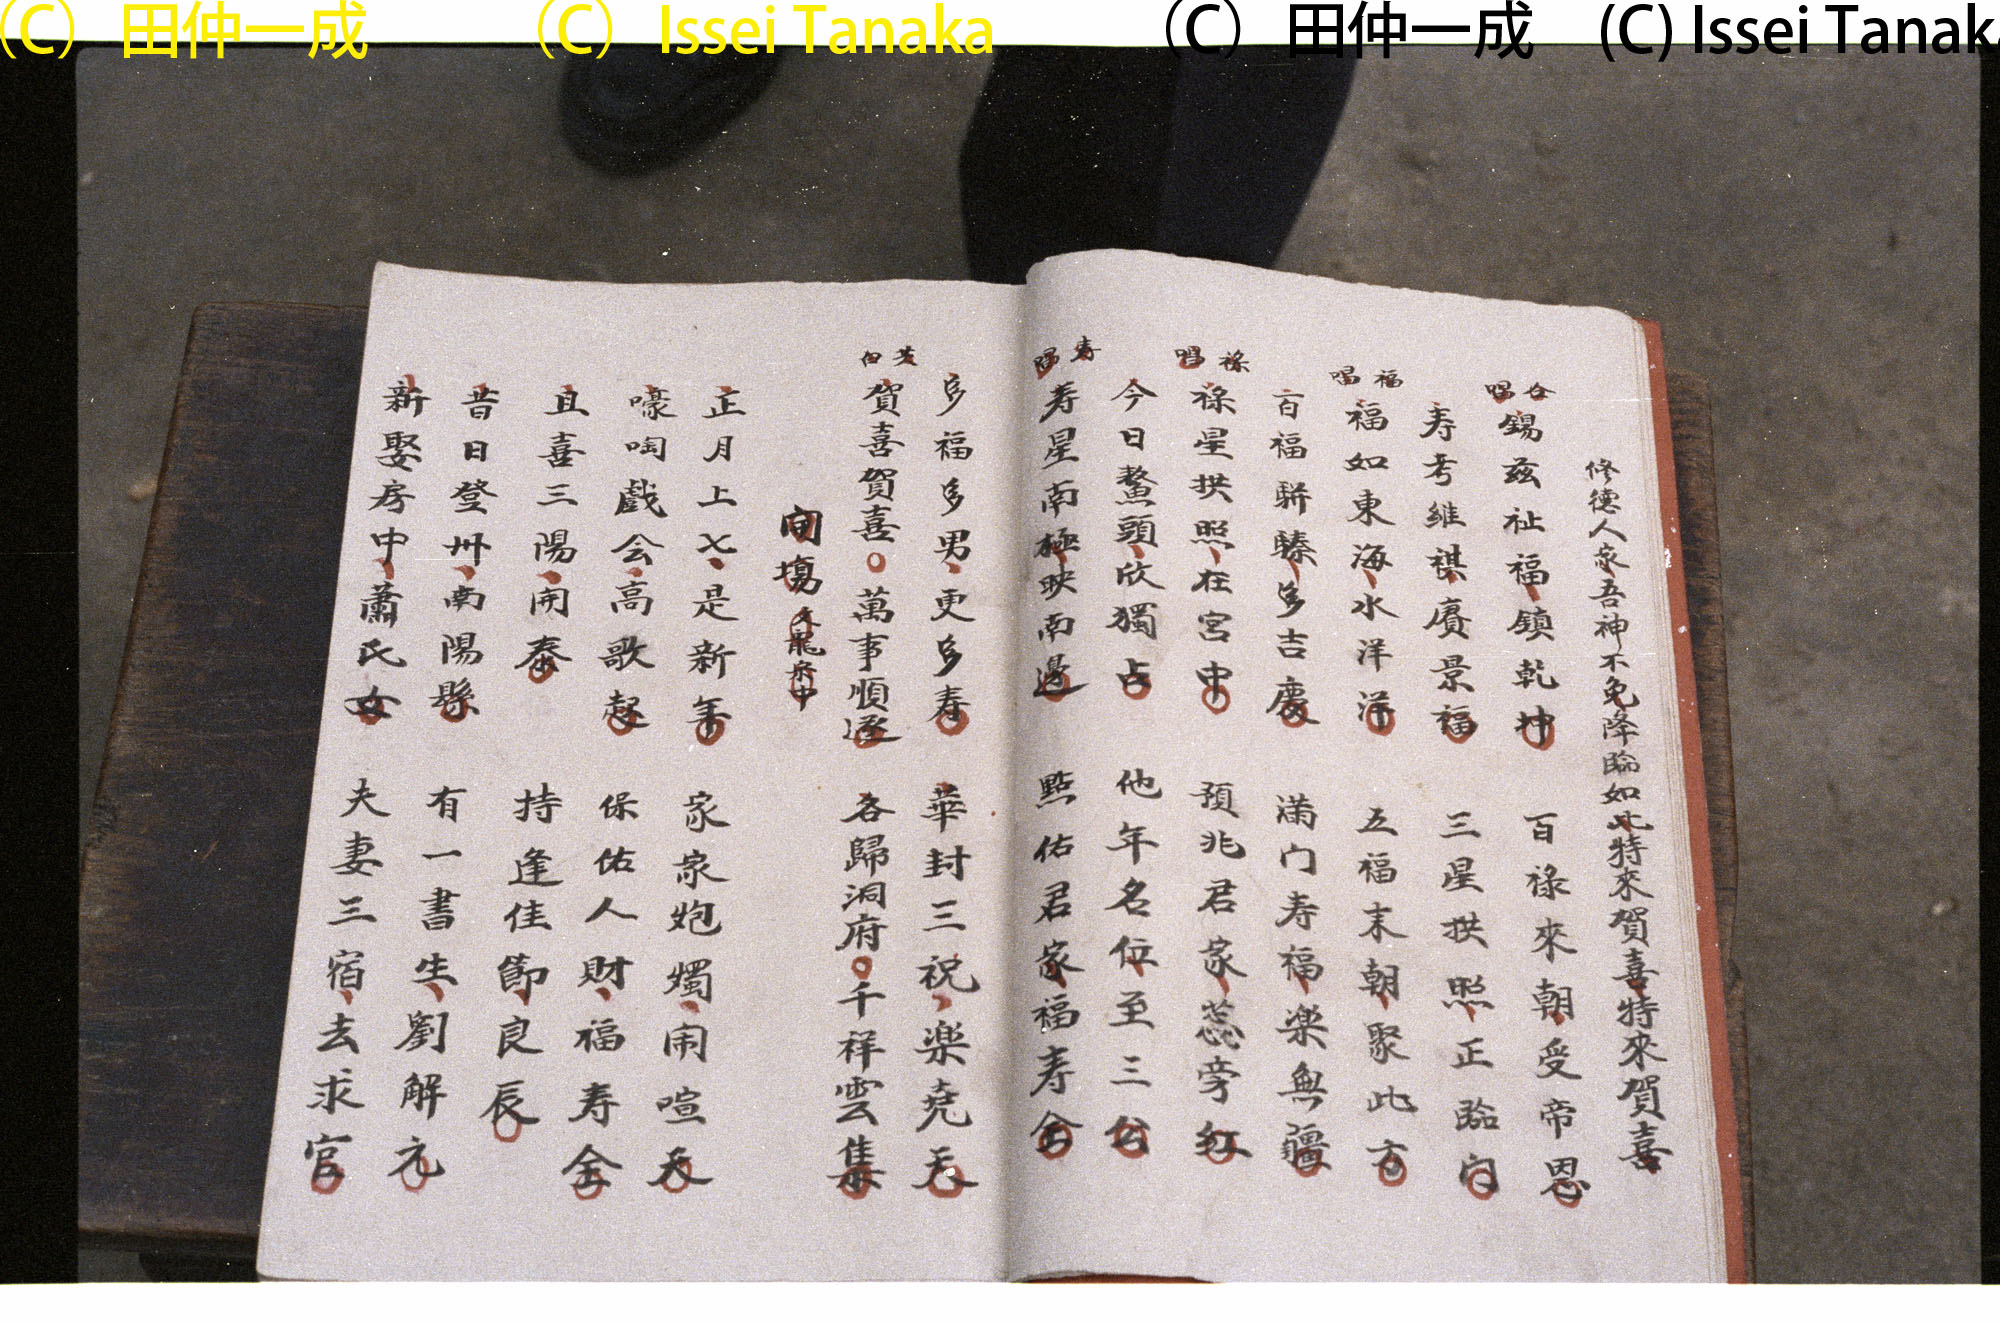 (C) 田仲一成 (C) Issei Tanaka (C) 田仲一成 (C) Issei Tanaka
修德人家吾神不免降臨如此特來賀喜特來賀喜
仝唱
錫茲祉福鎮乾坤 百祿來朝受帝恩
寿考維祺賡景福 三星拱照正臨門
福唱
福如東海水洋洋 五福来朝聚此方
百福駢臻多吉慶 满门寿福楽無疆
祿唱
祿星拱照在宮中 預兆君家蕊旁红
今日鰲頭欣獨占 他年名位至三公
寿唱
寿星南極映南邊 點佑君家福寿全
多福多男更多寿 華封三祝楽尭天
白
賀喜賀喜 萬事順遂 各歸洞府 千祥雲集
正月上七是新年 家家炮燭闹喧天
嚎啕戲会高歌起 保佑人財福寿全
且喜三陽開泰 持逢佳節良辰
昔日登州南陽縣 有一書生劉解元
新娶房中蕭氏女 夫妻三宿去求官